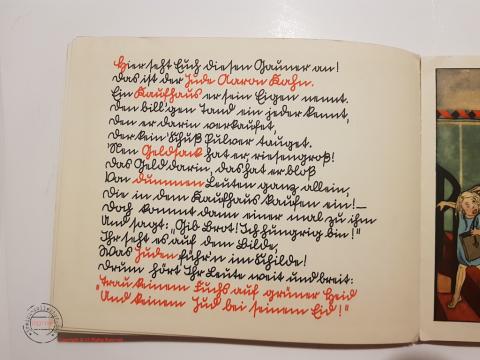 Hier seht Euch diesen Gauner an!
Das ist der Jude Aaron Kahn.
Ein Kaufhaus er sein Eigen nennt.
Den bill'gen Tand ein jeder kennt,
Den er darin verkaufet,
Der kein' Schuß Pulver tauget.
'Nen Geldsack hat er, riesengroß!
Das Geld darin, das hat er bloß
Von dummen Leuten ganz allein,
Die in dem Kaufhaus kaufen ein! —
Doch kommt dann einer mal zu ihm
Und sagt: „Gib Brot! Ich hungrig bin!"
Ihr seht es auf dem Bilde,
Was Juden führ'n im Schilde!
Drum hört Ihr Leute weit und breit:
„Trau keinem Fuchs auf grüner Heid
Und keinem Jud bei seinem Eid!"
Copyright © All Rights Reserved